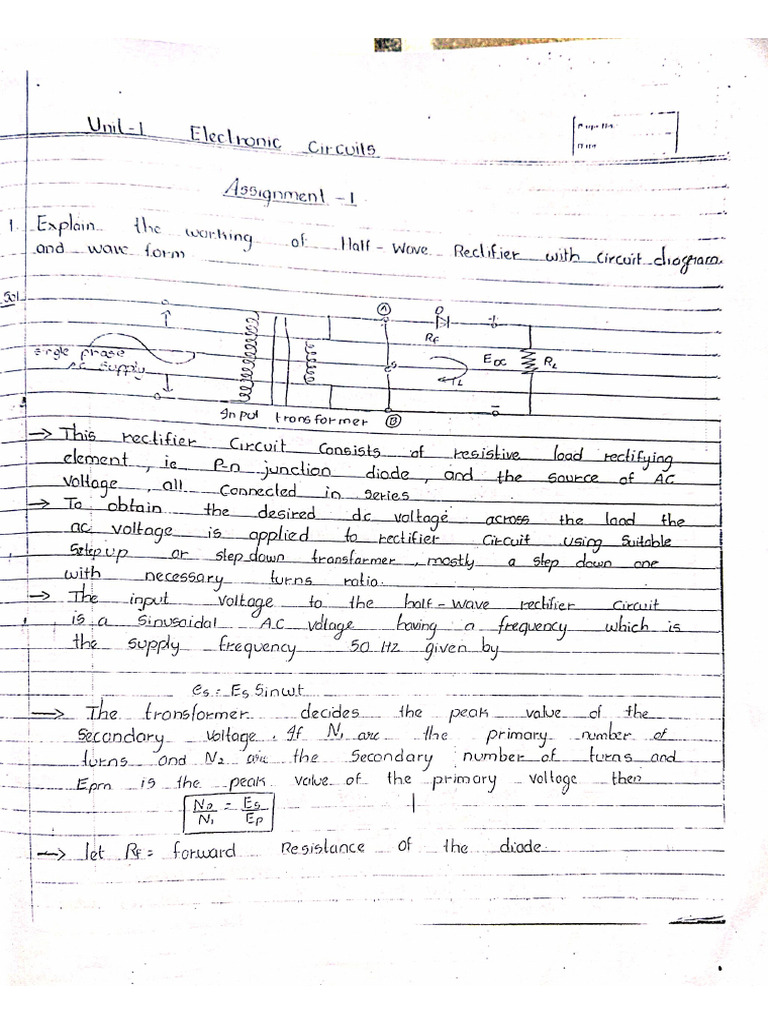 Unit-1 Electronic Circuits
Assignment -1
1. Explain the working of Half-Wave Rectifier with circuit diagram
and wave form
Sol
A
D
RF
single phase
AC supply
S
EDC
RL
IL
Input transformer
B
→ This rectifier circuit consists of resistive load rectifying
element, ie P-n junction diode, and the source of AC
voltage, all connected in series
→ To obtain the desired dc voltage across the load the
ac voltage is applied to rectifier circuit using suitable
step up or step down transformer, mostly a step down one
with necessary turns ratio.
→ The input voltage to the half-wave rectifier circuit
is a sinusoidal A.C voltage having a frequency which is
the supply frequency 50 Hz given by
es = Es Sinωt
→ The transformer decides the peak value of the
secondary voltage. If N1 are the primary number of
turns and N2 are the secondary number of turns and
Epm is the peak value of the primary voltage then
N2/N1 = Es/Ep
→ let RF = forward Resistance of the diode